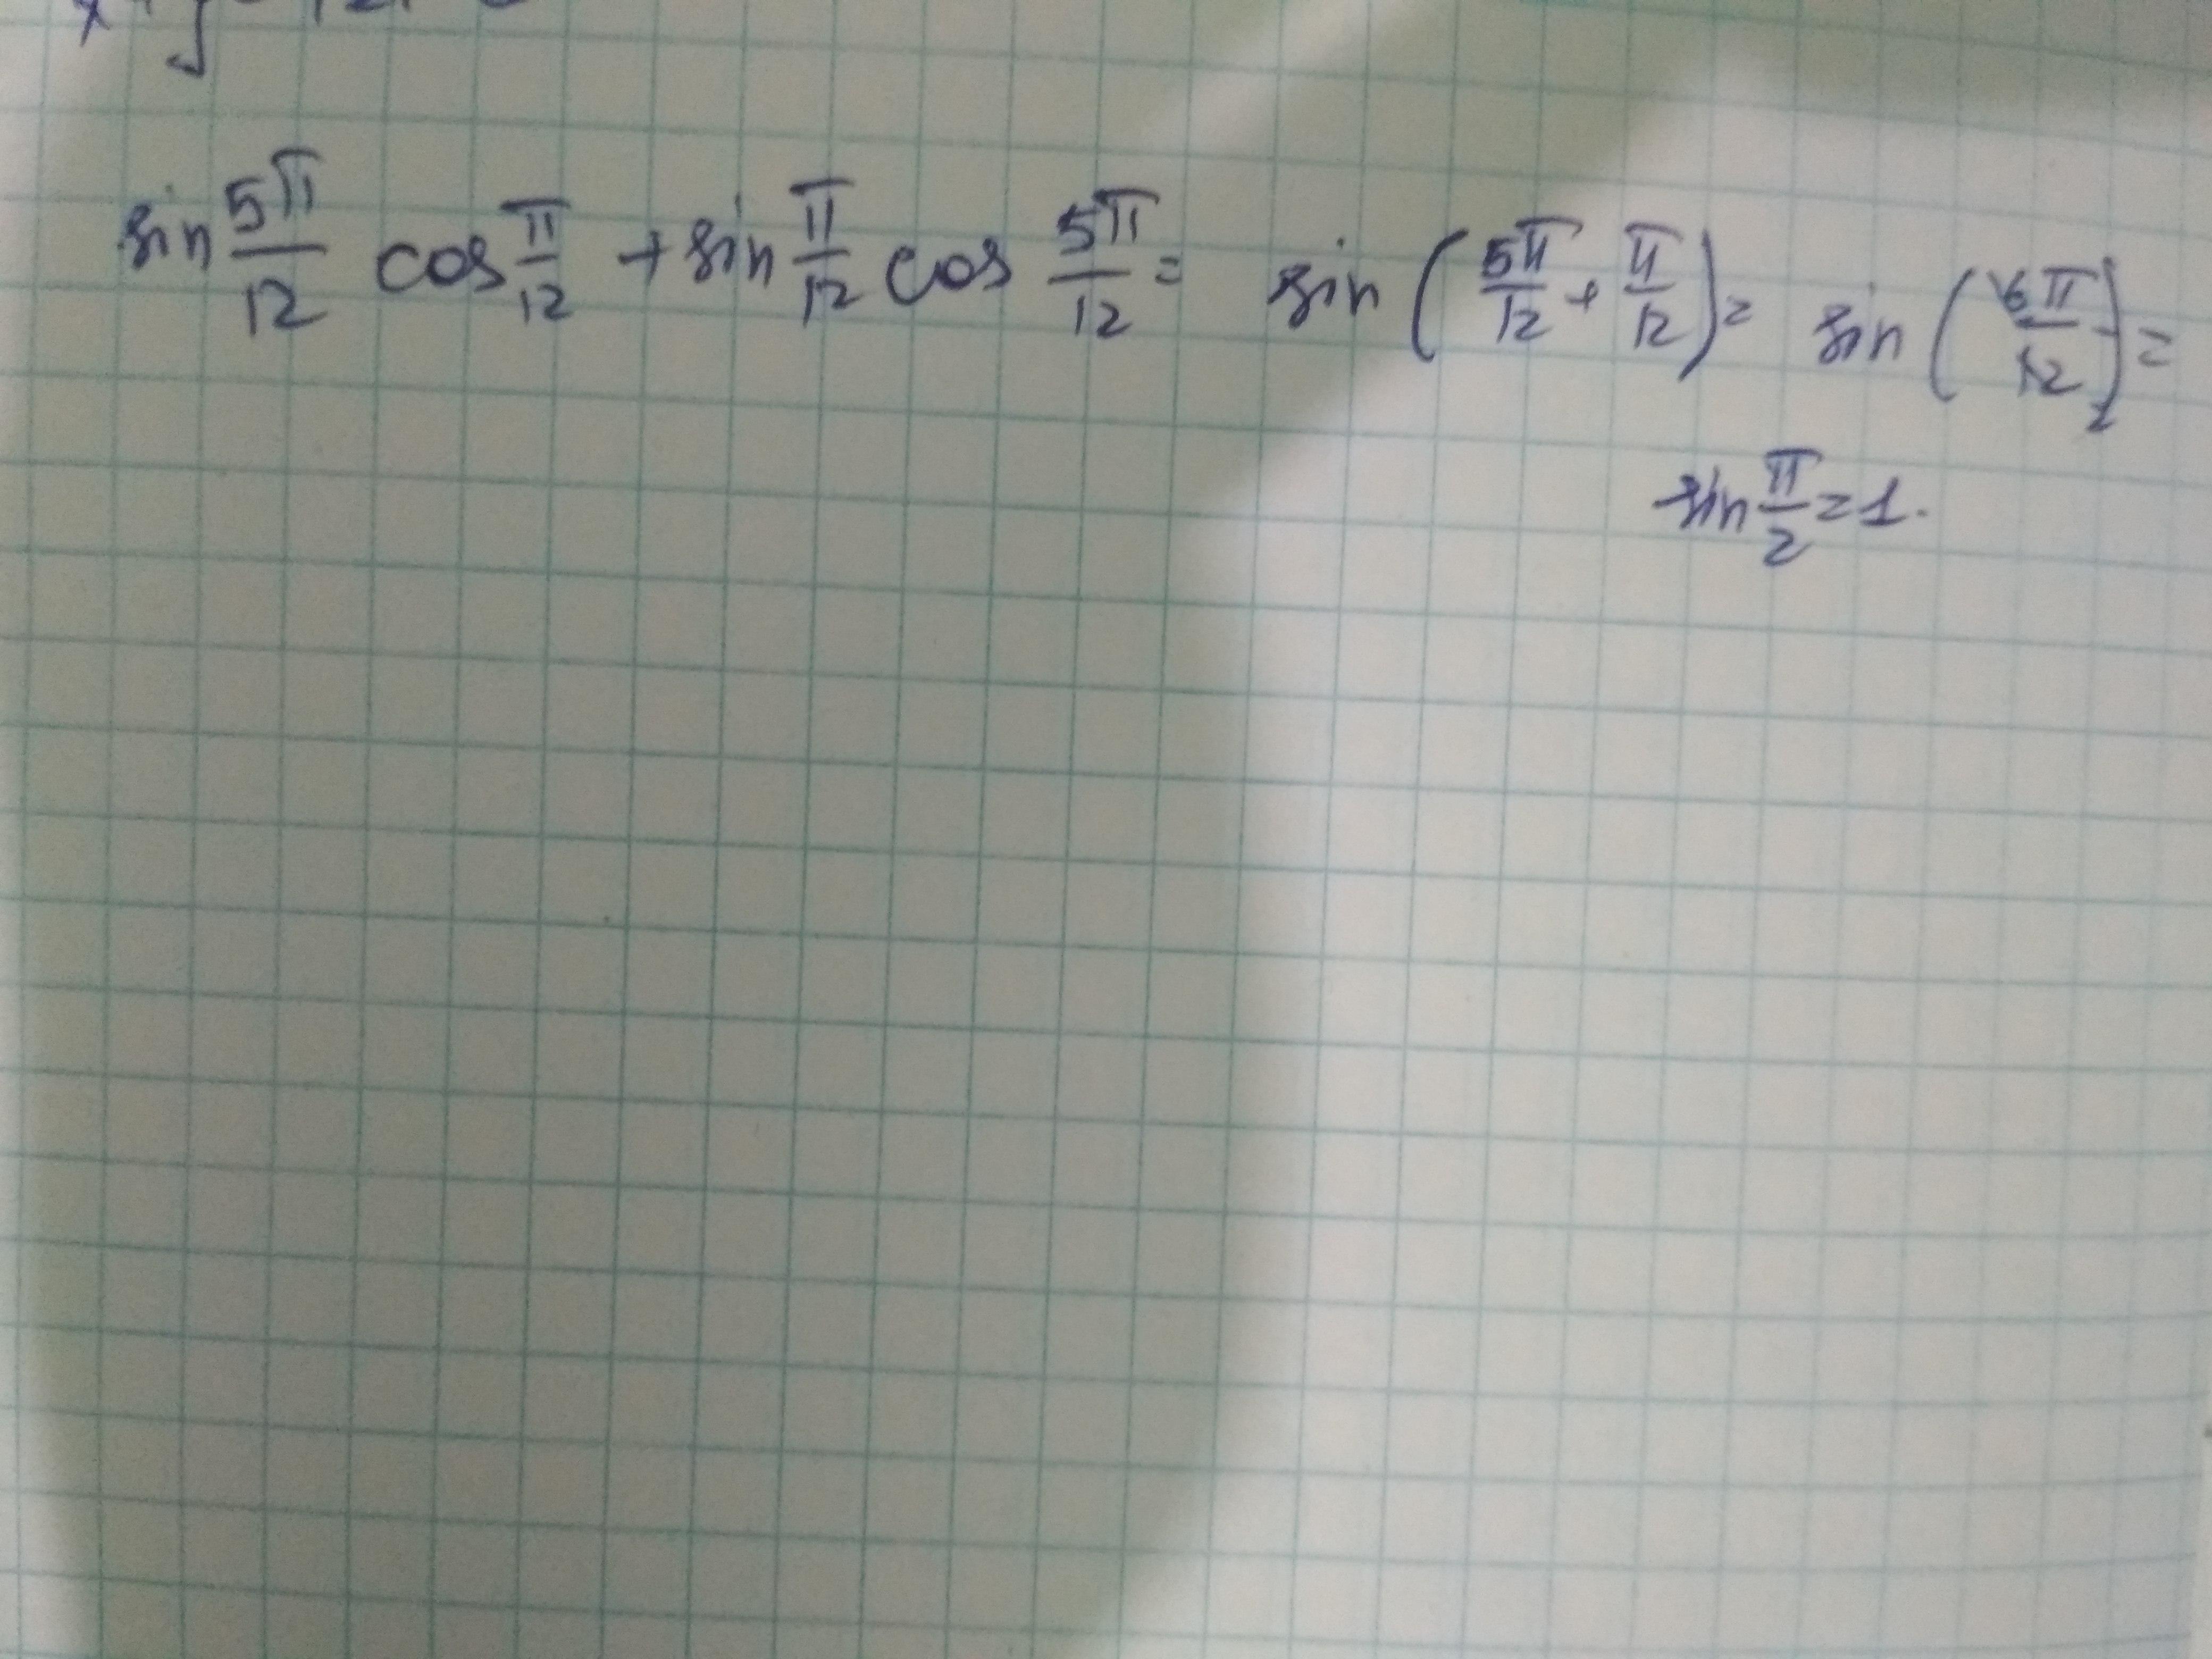 sin 5π/12 cos π/12 + sin π/12 cos 5π/12 = sin (5π/12 + π/12) = sin (6π/12) =
2
sin π/2 = 1.